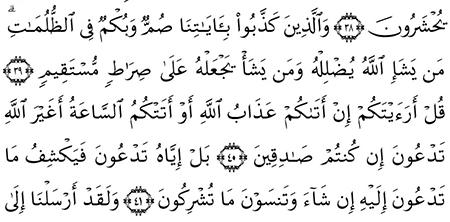 يُحْشَرُونَ ﴿٣٨﴾ وَٱلَّذِينَ كَذَّبُوا۟ بِـَٔايَـٰتِنَا صُمٌّ وَبُكْمٌ فِى ٱلظُّلُمَـٰتِ ۗ
مَن يَشَإِ ٱللَّهُ يُضْلِلْهُ وَمَن يَشَأْ يَجْعَلْهُ عَلَىٰ صِرَٰطٍ مُّسْتَقِيمٍ ﴿٣٩﴾
قُلْ أَرَءَيْتَكُمْ إِنْ أَتَىٰكُمْ عَذَابُ ٱللَّهِ أَوْ أَتَتْكُمُ ٱلسَّاعَةُ أَغَيْرَ ٱللَّهِ
تَدْعُونَ إِن كُنتُمْ صَـٰدِقِينَ ﴿٤٠﴾ بَلْ إِيَّاهُ تَدْعُونَ فَيَكْشِفُ مَا
تَدْعُونَ إِلَيْهِ إِن شَآءَ وَتَنسَوْنَ مَا تُشْرِكُونَ ﴿٤١﴾ وَلَقَدْ أَرْسَلْنَآ إِلَىٰٓ